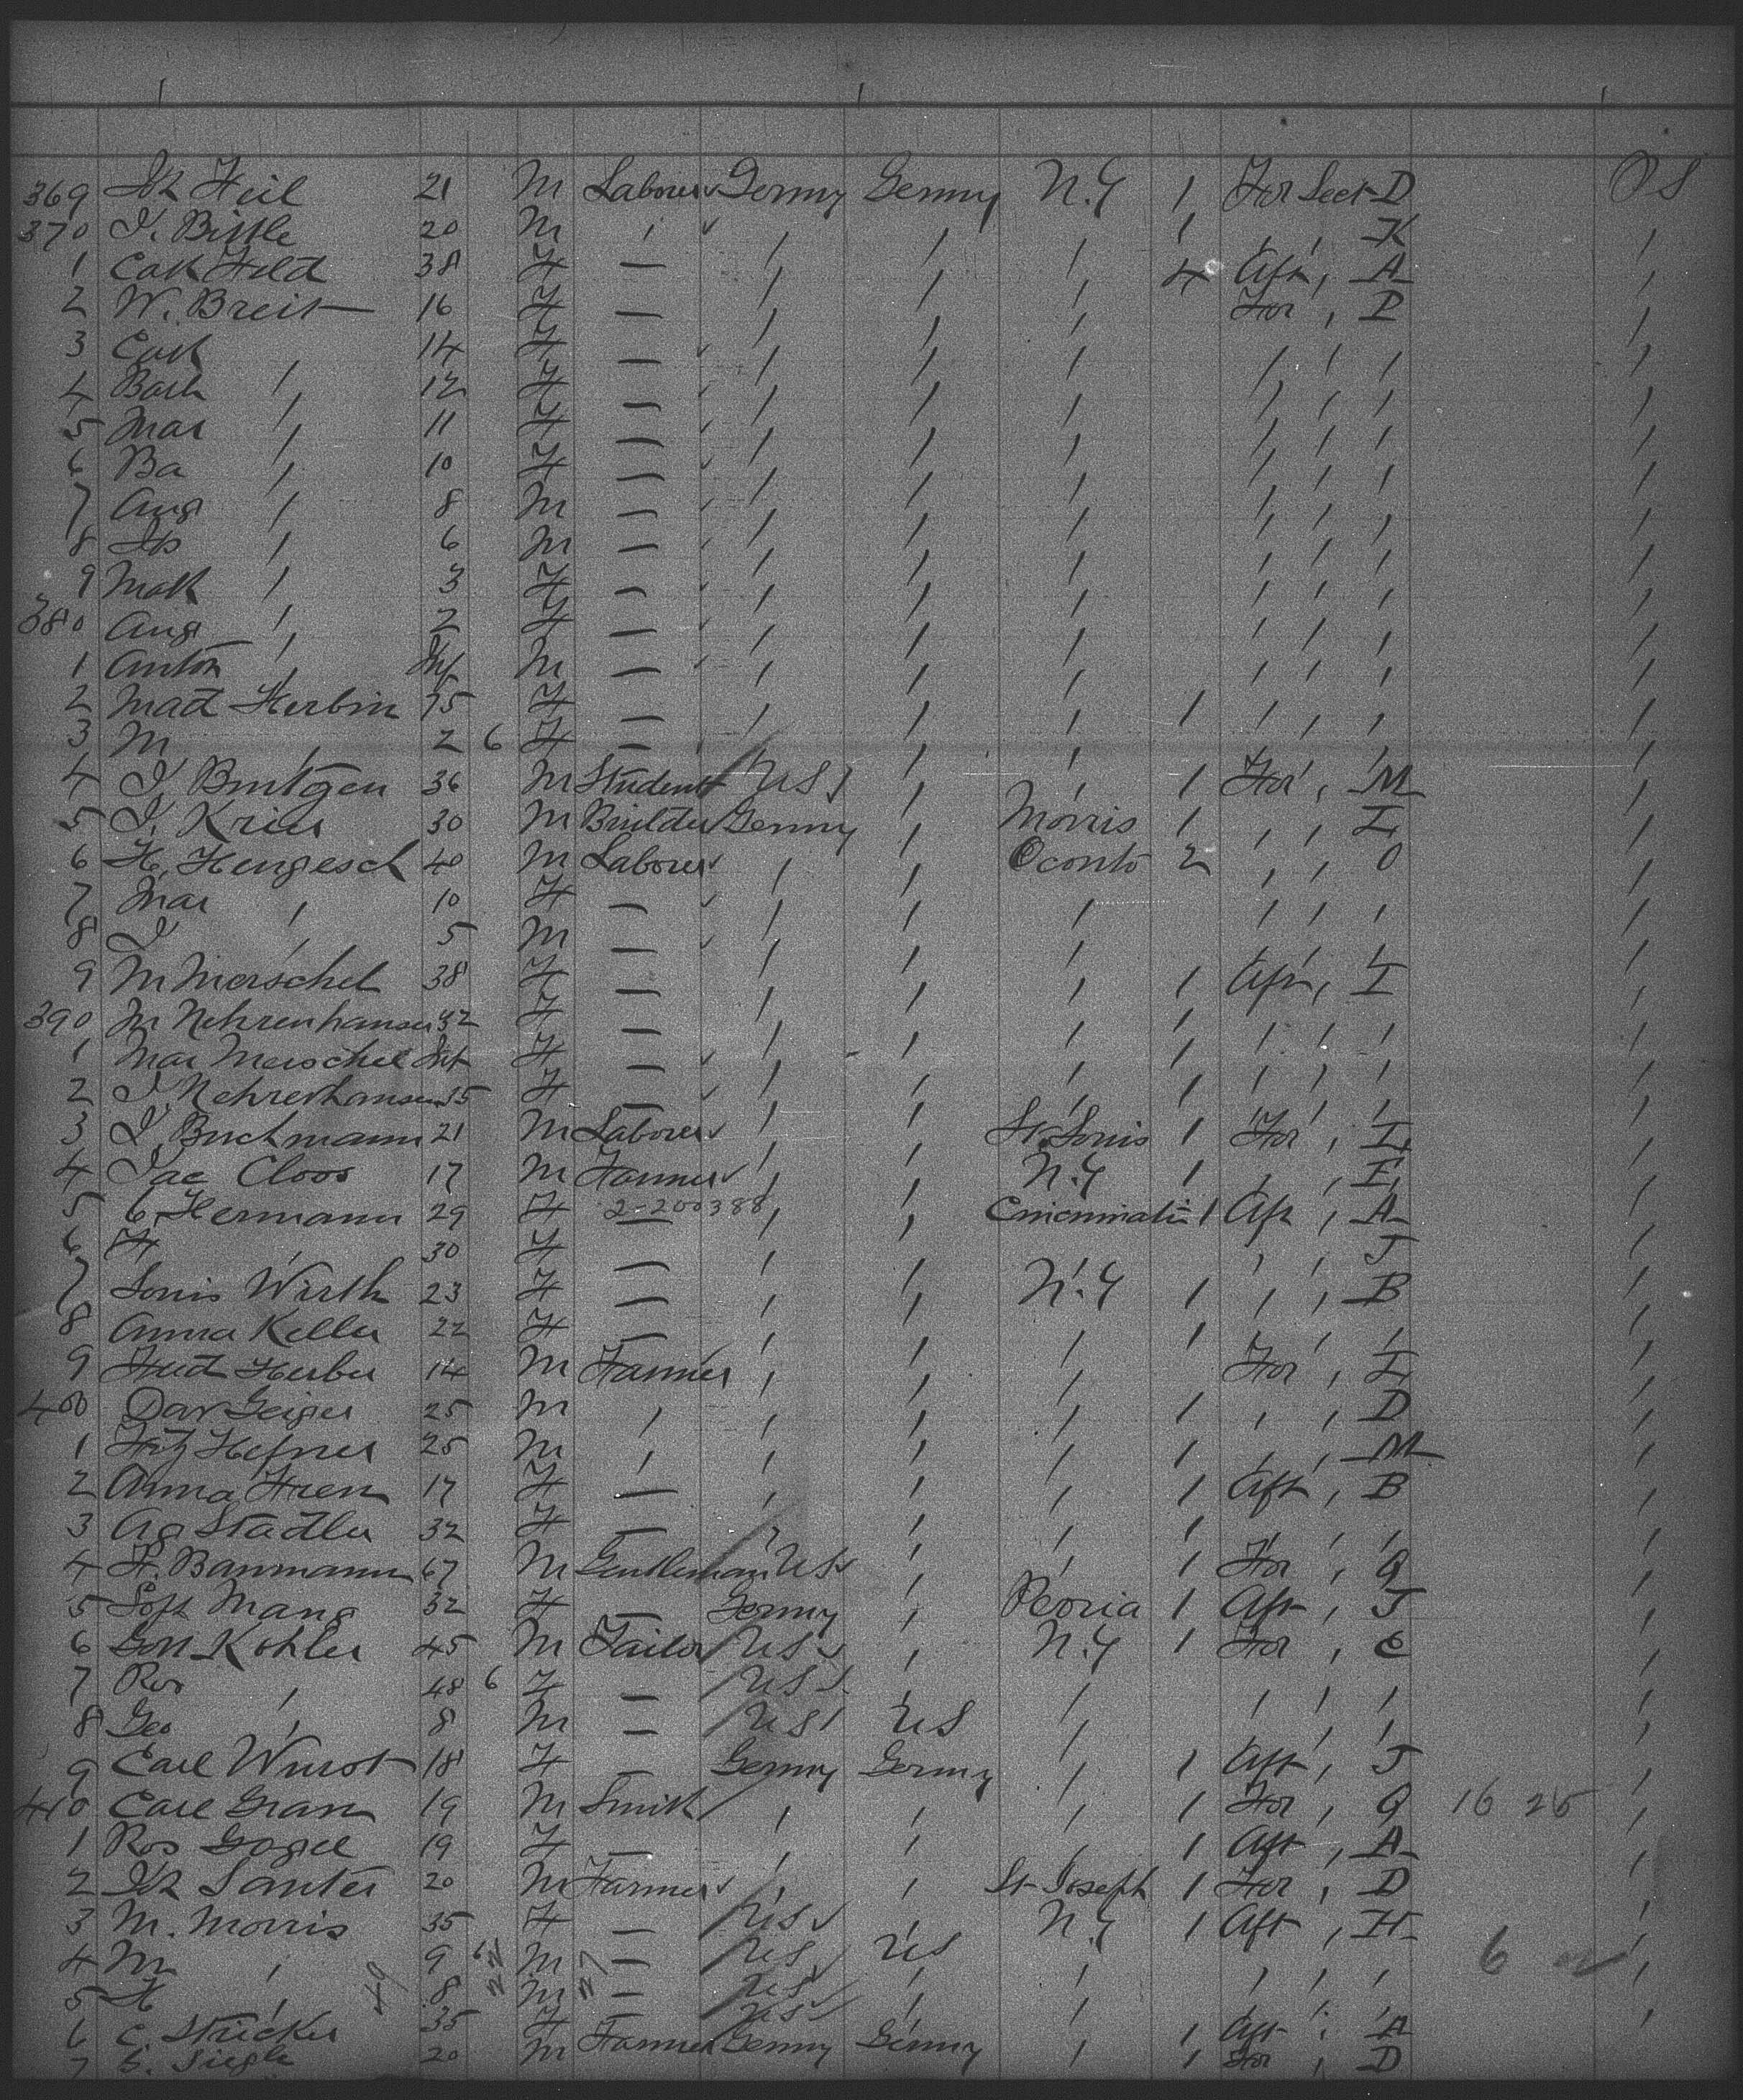 369 Jk Heil 21 M Laborer Germy Germy N.Y 1 For Sect D OS
370 J. Bittle 20 M , , , , 1 , , K ,
1 Cath Feld 38 F — , , , 4 Aft , A ,
2 W. Breit 16 F — , , , For , P ,
3 Cath , 14 F — , , , , , , ,
4 Barb , 12 F — , , , , , , ,
5 Mar , 11 F — , , , , , , ,
6 Ba , 10 F — , , , , , , ,
7 Aug , 8 M — , , , , , , ,
8 Jb , 6 M — , , , , , , ,
9 Math , 3 F — , , , , , , ,
380 Aug , 2 F — , , , , , , ,
1 Anton , Inf M — , , , , , , ,
2 Mad Herbin 75 F — , , , 1 , , , ,
3 M , 2 6 F — , , , , , , ,
4 J Bintgen 36 M Student US , , 1 For , M ,
5 J. Krier 30 M Builder Germy , Morris 1 , , L ,
6 H. Hengesch 40 M Laborer , , Oconto 2 , , O ,
7 Mar , 10 F — , , , , , , ,
8 J , 5 M — , , , , , , ,
9 M Morschel 38 F — , , , 1 Aft , I ,
390 M Nehrenhausen 32 F — , , , 1 , , , ,
1 Mar Merschel Inf F — , , , 1 , , , ,
2 J Nehrenhausen 55 F — , , , 1 , , , ,
3 J. Buchmann 21 M Laborer , , St. Louis 1 For , L ,
4 Jac Cloos 17 M Farmer , , N.Y 1 , , E ,
5 C. Hermann 29 F 2-200388 , , Cincinnati 1 Aft , A ,
6 F , 30 F — , , , , , J ,
7 Louis Wirth 23 F — , , N.Y 1 , , B ,
8 Anna Keller 22 F — , , , 1 , , , ,
9 Fred Herber 14 M Farmer , , , For , L ,
400 Dav Geiger 25 M , , , , 1 , , D ,
1 Fritz Hefner 25 M , , , , 1 , , M ,
2 Anna Fren 17 F — , , , 1 Aft , B ,
3 Ag Stadler 32 F — , , , 1 , , , ,
4 F. Baumann 67 M Gentleman US , , 1 For , G ,
5 Soph Mang 32 F — Germy , Peoria 1 Aft , J ,
6 Gott Kohler 45 M Tailor US , N.Y 1 For , C ,
7 Ros , 48 6 F — US , , , , , ,
8 Geo , 8 M — US US , , , , ,
9 Carl Wurst 18 F — Germy Germy , 1 Aft , J ,
410 Carl Gram 19 M Smith , , , 1 For , G 16 25 ,
1 Ros Gogel 19 F — , , , 1 Aft , A ,
2 Jk Santer 20 M Farmer , , St Joseph 1 For , D ,
3 M. Morris 35 F — US , N.Y 1 Aft , H ,
4 M , 9 6 22 M 27 — US US , , , , 6 ,
5 H , 49 8 22 M 27 — US , , , , , ,
6 C. Stricker 35 F US , , 1 Aft , A
7 G. Siegle 20 M Farmer Germy Germy , 1 For , D